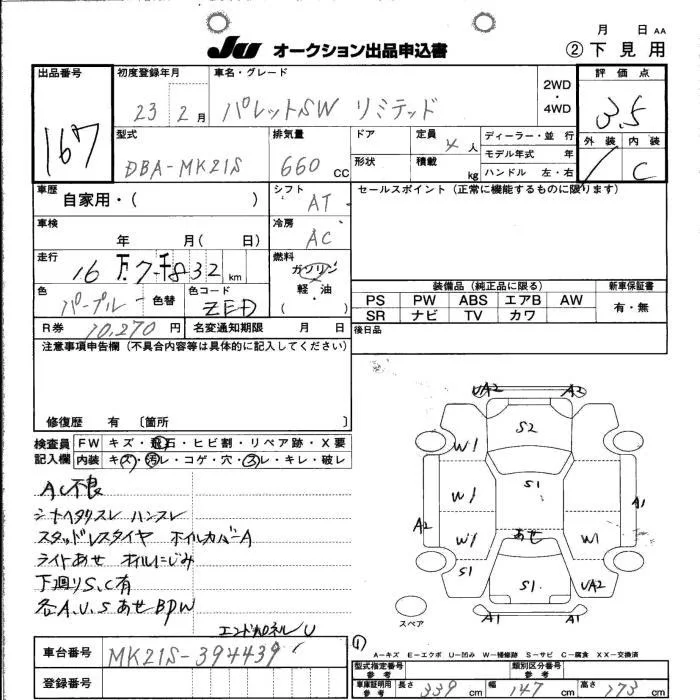 月 日 AA
JU オークション出品申込書 ②下見用
出品番号 初度登録年月 車名・グレード 2WD・4WD 評価点
167 23 2月 パレットSW リミテッド 3.5
型式 排気量 ドア 定員 4人 ディーラー・並行 外装 内装
DBA-MK21S 660cc 形状 積載 kg モデル年式 年 C
ハンドル 左・右
車歴 自家用・( ) シフト AT セールスポイント(正常に機能するものに限ります)
車検 年 月( 日) 冷房 AC
走行 16万7千832km 燃料 ガソリン 軽・油 ( )
装備品(純正品に限る) 新車保証書
色 パープル 色替 色コード ZED PS PW ABS エアB AW 有・無
SR ナビ TV カワ
R券 10,270円 名変通知期限 月 日 後日品
注意事項申告欄(不具合内容等は具体的に記入してください)
修復歴 有 〔箇所 〕
検査員記入欄 FW キズ・飛石・ヒビ割・リペア跡・X要
内装 キズ・汚レ・コゲ・穴・スレ・キレ・破レ
AC不良
シートヘタリスレ ハンスレ
スタッドレスタイヤ ホイルカバーA
ライトあせ オイルにじみ
下廻りS、C有
各A.U.SあせBPW
エンドパネルU
UA2 A2
S2
W1
W1 S1
A2 A1
W1 あせ W1
S1 S1 UA2
A1 A1
スペア
①
A-キズ E-エクボ U-凹み W-補修跡 S-サビ C-腐食 XX-交換済
車台番号 MK21S-394439
登録番号
型式指定番号 参考 類別区分番号 参考
車庫証明用 参考 長さ 339cm 幅 147cm 高さ 173cm